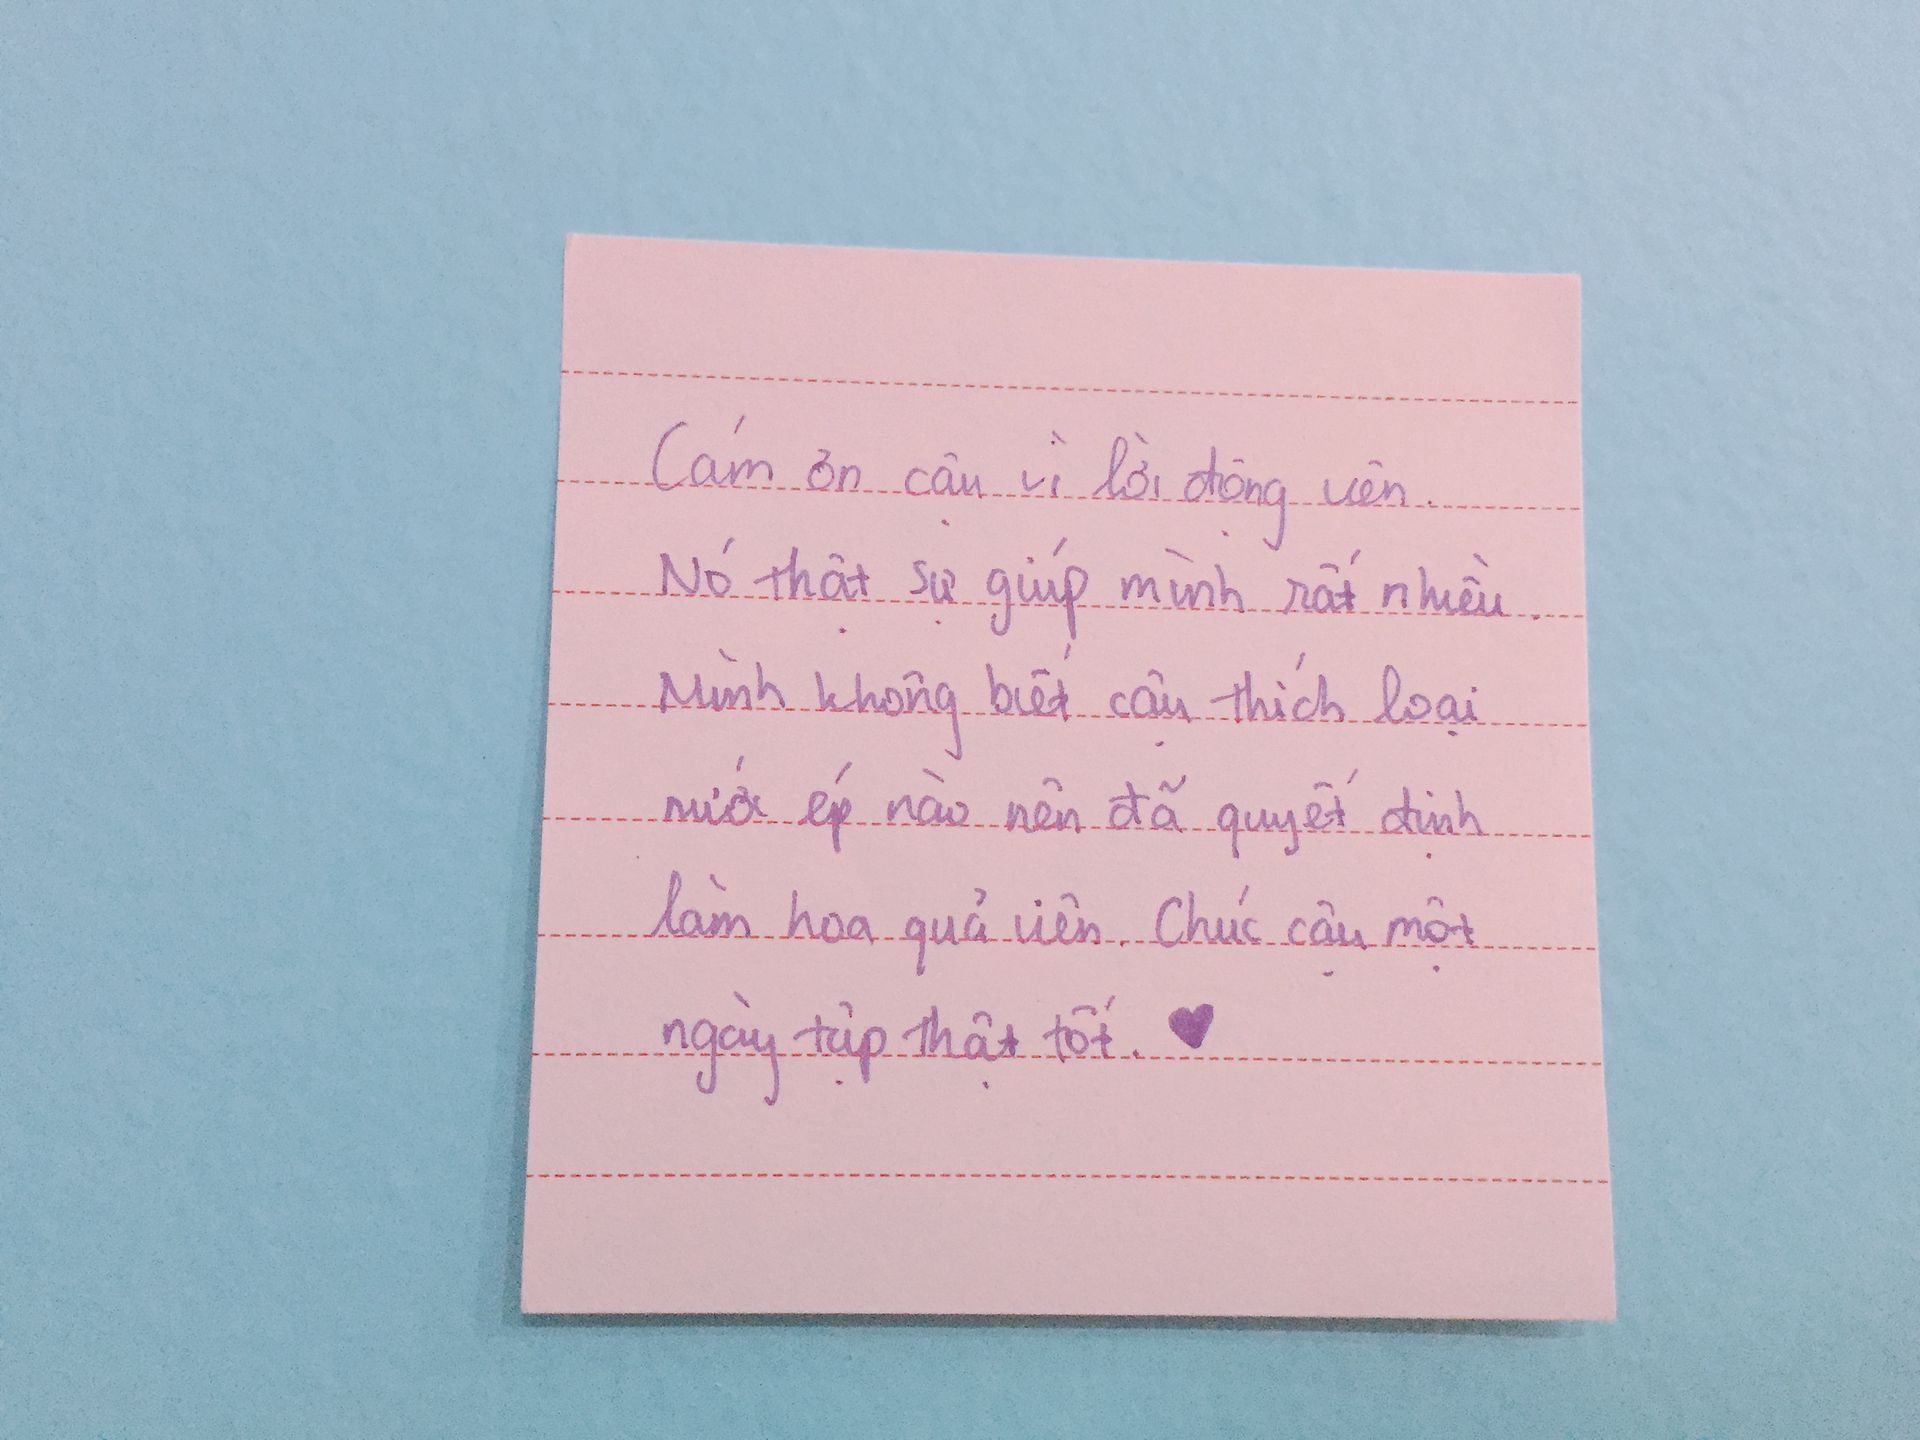 Cám ơn cậu vì lời động viên.
Nó thật sự giúp mình rất nhiều.
Mình không biết cậu thích loại
nước ép nào nên đã quyết định
làm hoa quả viên. Chúc cậu một
ngày tập thật tốt. ♥